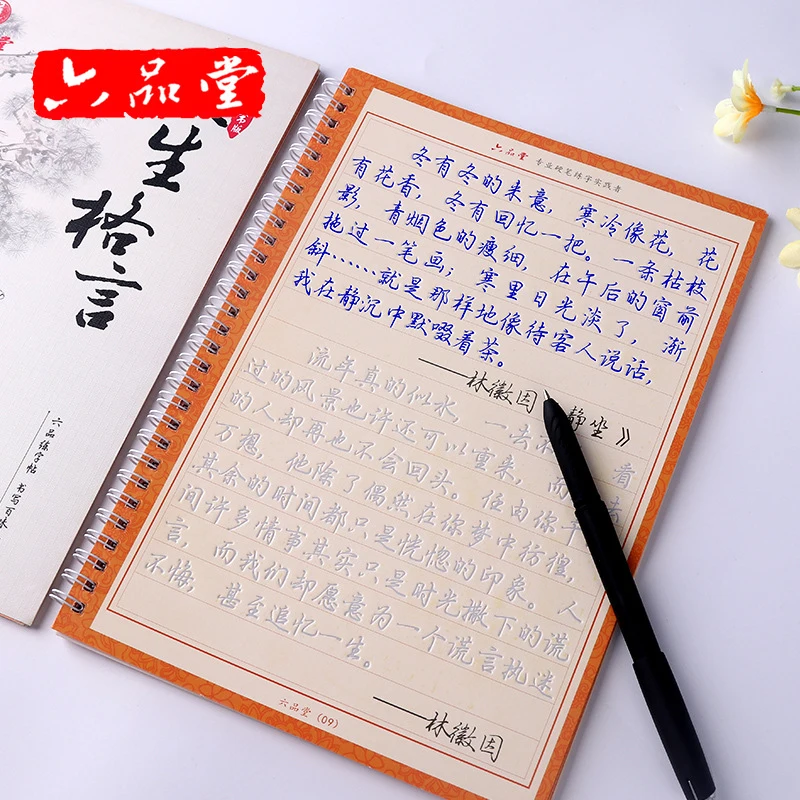 六品堂
生
格言
六品练字帖 书写百体
六品堂 专业硬笔练字实践者
冬有冬的来意，寒冷像花，花
有花香，冬有回忆一把。一条枯枝
影，青烟色的瘦细，在午后的窗前
拖过一笔画；寒里日光淡了，渐
斜……就是那样地像待客人说话，
我在静沉中默啜着茶。
——林徽因 静坐》
流年真的似水，一去 看
过的风景也许还可以重来，而
的人却再也不会回头。任由你千
万想，他除了偶然在你梦中彷徨，
其余的时间都只是恍惚的印象。人
间许多情事其实只是时光撒下的谎
言，而我们却愿意为一个谎言执迷
不悔，甚至追忆一生。
——林徽因
六品堂（09）